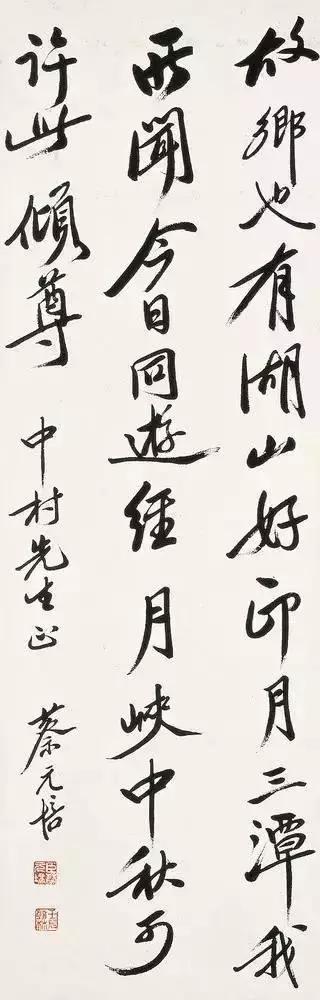 故鄉也有湖山好印月三潭我
所聞今日同遊經月峽中秋可
許此傾尊 中村先生正 蔡元培